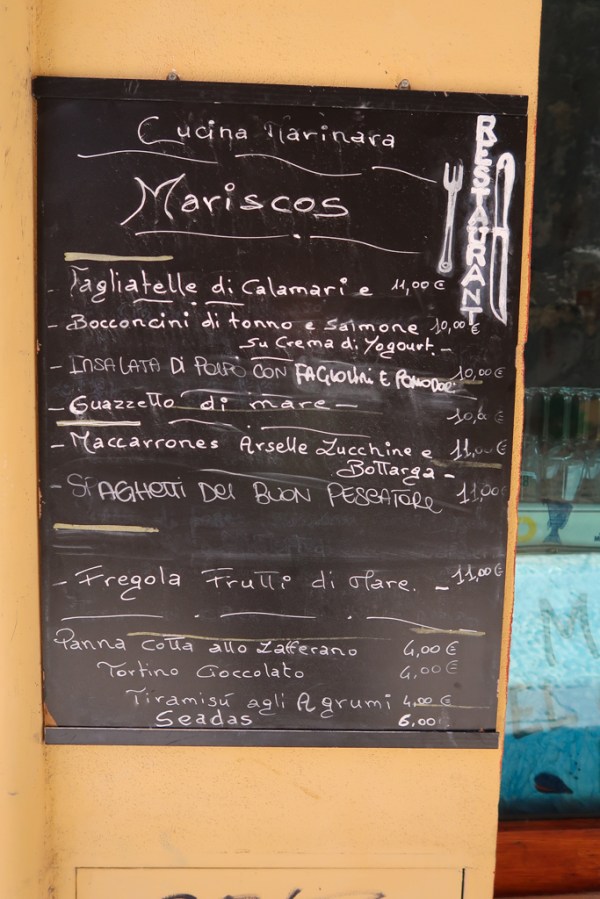 Cucina Marinara
RESTAURANT
Mariscos
- Tagliatelle di Calamari e 11,00 €
- Bocconcini di tonno e Salmone 10,00 €
su Crema di Yogourt. -
- INSALATA DI POLPO CON FAGIOLINI E POMODORI 10,00 €
- Guazzetto di mare - 10,00 €
- Maccarrones Arselle Zucchine e 11,00 €
Bottarga -
- SPAGHETTI DEL BUON PESCATORE 11,00€
- Fregola Frutti di Mare. - 11,00 €
Panna cotta allo Zafferano 4,00 €
Tortino Cioccolato 4,00 €
Tiramisú agli Agrumi 4,00 €
Seadas 6,00